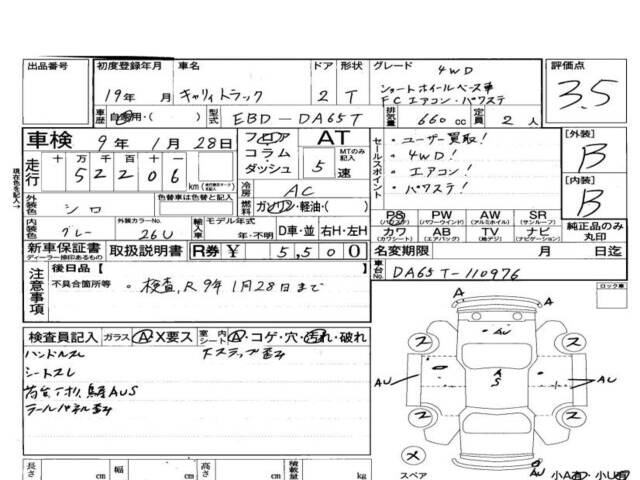 出品番号
初度登録年月
車名
ドア 形状
グレード 4WD
評価点
19年 月
キャリイトラック
2 T
ショートホイールベース車
FC エアコン・パワステ
3.5
車歴 自家用・( )
型式 EBD-DA65T
排気量 660 cc
定員 2 人
車検 9年 1月 28日
フロア
コラム
ダッシュ
AT
MTのみ記入
5 速
セールスポイント
・ユーザー買取!
・4WD!
・エアコン!
・パワステ!
[外装]
B
[内装]
B
現在色を記入→
走行
十 万 千 百 十
5 2 2 0 6
km
冷房 AC
燃料 ガソリン・軽油・( )
外装色 シロ
色替車は色替と記入
内装色 グレー
外装カラーNo.
26U
輸入車
モデル年式
年・不明
D車・並 右H・左H
PS (パワステ)
PW (パワーウインド)
AW (アルミホイル)
SR (サンルーフ)
カワ (カワシート)
AB (エアバッグ)
TV (テレビ)
ナビ (ナビゲーション)
純正品のみ
丸印
新車保証書
ディーラー捺印あるもの
取扱説明書
R券 ¥ 5,500
名変期限 月 日迄
車台No. DA65T-110976
注意事項
後日品【
不具合箇所等
・検査、R9年1月28日まで
ロック車
検査員記入
ガラス A・X要ス
室内シート A・コゲ・穴・汚れ・破れ
ハンドルスレ
Fステップ歪み
シートスレ
テールパネル歪み
A
A
AU
2
2
AU
A
S
AU
2
2
×
スペア
AU
小A 小U
長さ cm
幅 cm
高さ cm
積載量 kg